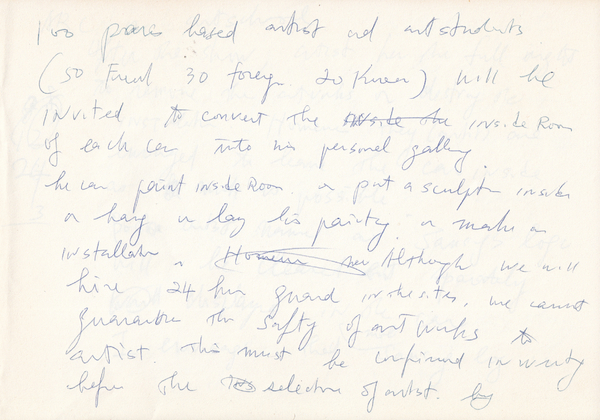 100 paris based artist and art students
(50 French 30 foreign 20 Korean) will be
invited to convert the inside the inside Room
of each car into his personal gallery.
he can paint inside Room. or put a sculptur inside
or hang or lay his painting. or make an
installation. However Although we will
hire 24 hour guard in the sites, we cannot
guarantee the safty of art works to
artist. This must be confirmed in writing
before the selection of artist.